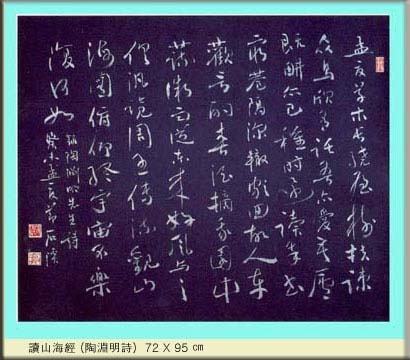 孟夏草木長繞屋樹扶疎
眾鳥欣有託吾亦愛吾廬
既耕亦已種時還讀我書
窮巷隔深轍頗回故人車
歡言酌春酒摘我園中
蔬微雨從東來好風與之
俱汎覽周王傳流觀山
海圖俯仰終宇宙不樂
復何如
陶淵明先生詩
癸未孟夏
讀山海經 (陶淵明詩) 72 X 95 ㎝